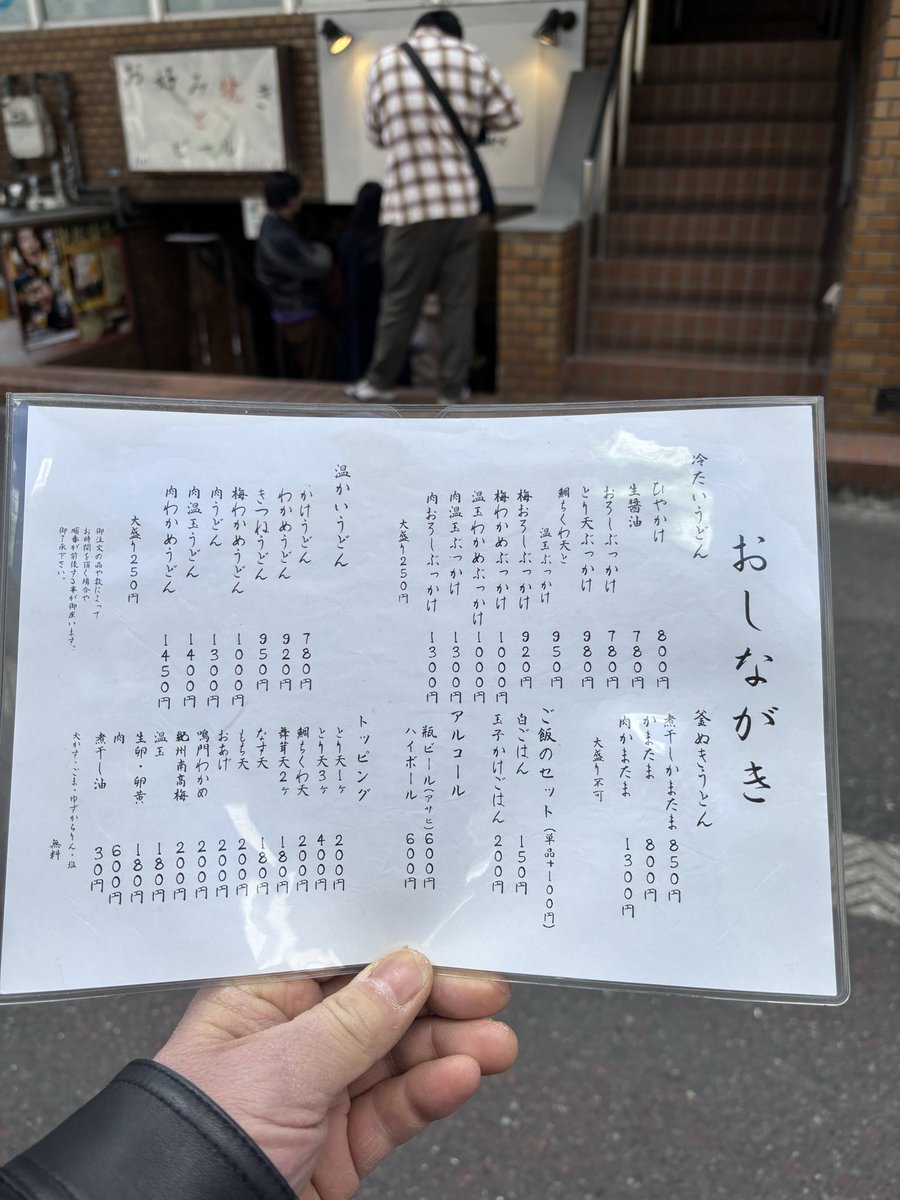 お好み焼き
と
ビール
おしながき
冷たいうどん
ひやかけ 800円
生醤油 780円
おろしぶっかけ 780円
とり天ぶっかけ 980円
鯛ちくわ天と
温玉ぶっかけ 950円
梅おろしぶっかけ 920円
梅わかめぶっかけ 1000円
温玉わかめぶっかけ 1000円
肉温玉ぶっかけ 1300円
肉おろしぶっかけ 1300円
大盛り250円
温かいうどん
かけうどん 780円
わかめうどん 920円
きつねうどん 950円
梅わかめうどん 1000円
肉うどん 1300円
肉温玉うどん 1400円
肉わかめうどん 1450円
大盛り250円
御注文の品や数によって
お時間を頂く場合や
順番が前後する事が御座います。
御了承下さい。
釜ぬきうどん
煮干しかまたま 850円
かまたま 800円
肉かまたま 1300円
大盛り不可
ご飯のセット(単品+100円)
白ごはん 150円
玉子かけごはん 200円
アルコール
瓶ビール(アサヒ) 600円
ハイボール 600円
トッピング
とり天1ヶ 200円
とり天3ヶ 400円
鯛ちくわ天 200円
舞茸天2ヶ 180円
なす天 180円
もち天 200円
おあげ 200円
鳴門わかめ 200円
紀州南高梅 200円
温玉 180円
生卵・卵黄 180円
肉 600円
煮干し油 30円
天かす・ごま・ゆずからりん・塩
無料